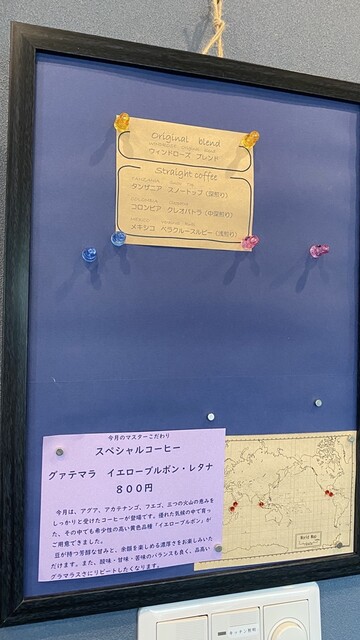 Original blend
ウィンドローズ ブレンド
Straight coffee
タンザニア スノートップ (深煎り)
コロンビア クレオパトラ (中深煎り)
メキシコ ベラクルースルビー (浅煎り)
今月のマスターこだわり
スペシャルコーヒー
グァテマラ イエローブルボン・レタナ
８００円
今月は、アグア、アカテナンゴ、フエゴ、三つの火山の恵みを
しっかりと受けたコーヒーが登場です。優れた気候の中で育っ
た、その中でも希少性の高い黄色品種「イエローブルボン」が
ご用意できました。
豆が持つ芳醇な甘みと、余韻を楽しめる濃厚さをお楽しみいた
だけます。また、酸味・甘味・苦味のバランスも良く、品高い
グラマラスさにリピートしたくなります。
World Map
キッチン照明